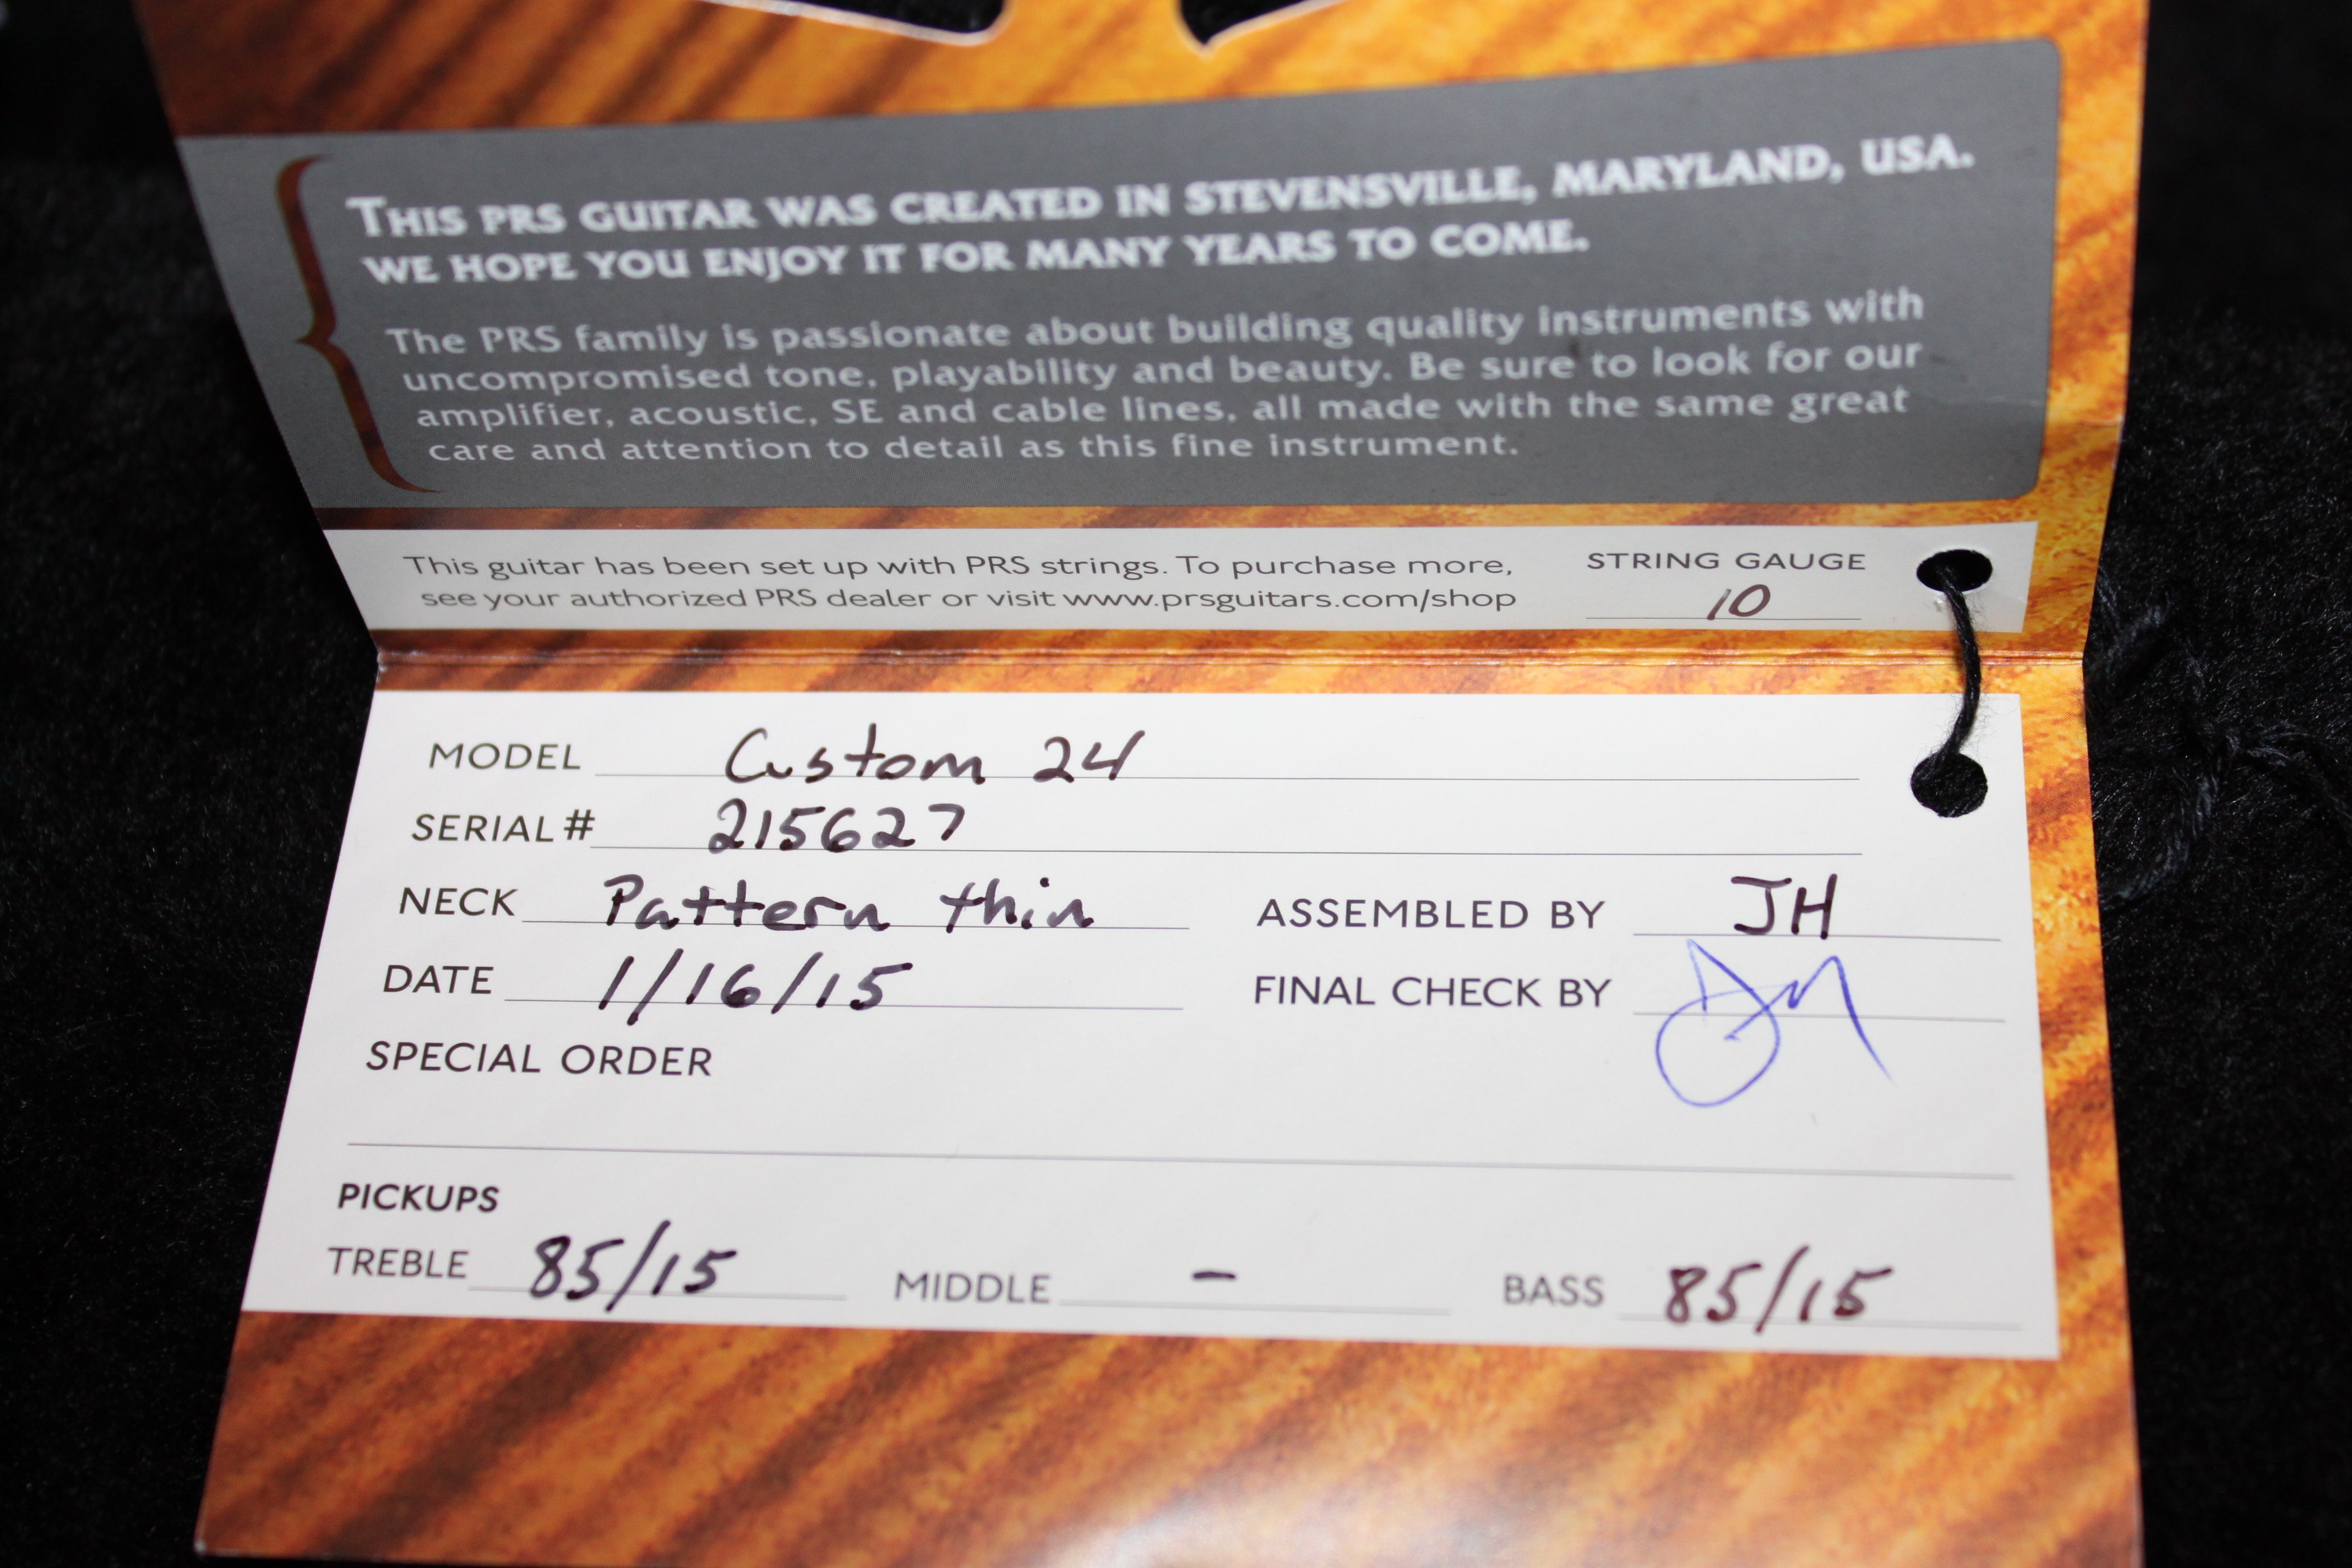 THIS PRS GUITAR WAS CREATED IN STEVENSVILLE, MARYLAND, USA.
WE HOPE YOU ENJOY IT FOR MANY YEARS TO COME.
The PRS family is passionate about building quality instruments with
uncompromised tone, playability and beauty. Be sure to look for our
amplifier, acoustic, SE and cable lines, all made with the same great
care and attention to detail as this fine instrument.
This guitar has been set up with PRS strings. To purchase more,
see your authorized PRS dealer or visit www.prsguitars.com/shop
STRING GAUGE
10
MODEL Custom 24
SERIAL# 215627
NECK Pattern thin
ASSEMBLED BY JH
DATE 1/16/15
FINAL CHECK BY
SPECIAL ORDER
PICKUPS
TREBLE 85/15 MIDDLE - BASS 85/15